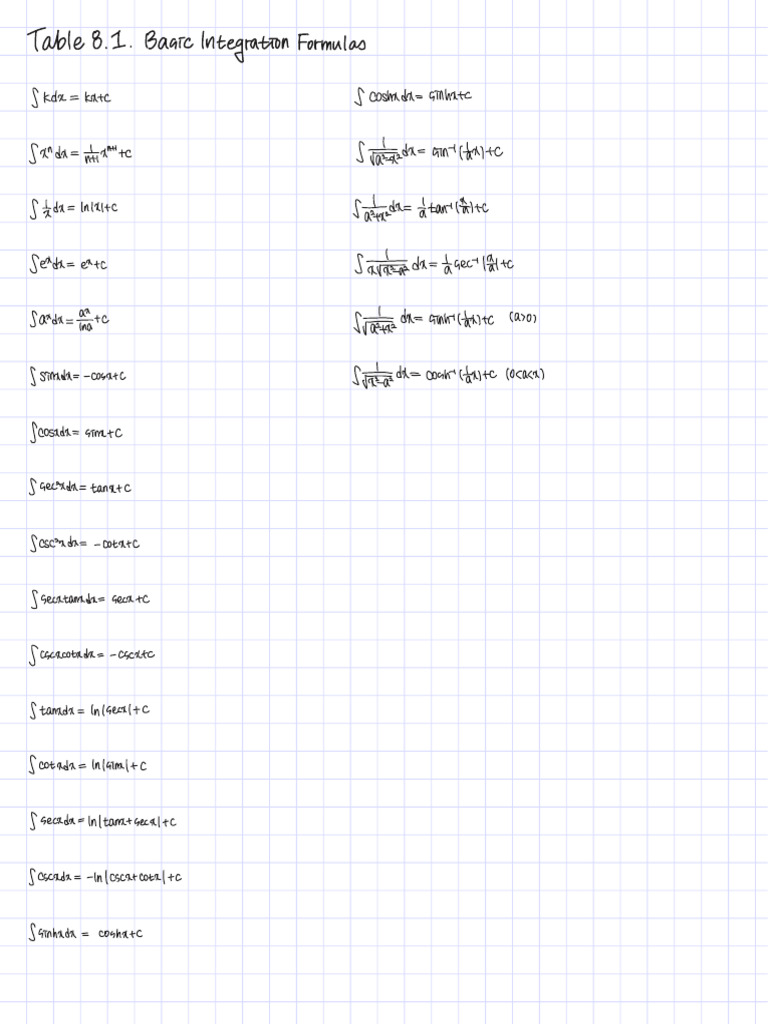 Table 8.1. Basic Integration Formulas
∫ k dx = kx+C
∫ xⁿ dx = 1/(n+1) xⁿ⁺¹ + C
∫ 1/x dx = ln|x|+C
∫ eˣ dx = eˣ+C
∫ aˣ dx = aˣ/ln a + C
∫ sinx dx = -cosx+C
∫ cosx dx = sinx+C
∫ sec²x dx = tanx+C
∫ csc²x dx = -cotx+C
∫ secx tanx dx = secx+C
∫ cscx cotx dx = -cscx+C
∫ tanx dx = ln|secx|+C
∫ cotx dx = ln|sinx|+C
∫ secx dx = ln|tanx+secx|+C
∫ cscx dx = -ln|cscx+cotx|+C
∫ sinhx dx = coshx+C
∫ coshx dx = sinhx+C
∫ 1/√(a²-x²) dx = sin⁻¹(1/a x)+C
∫ 1/(a²+x²) dx = 1/a tan⁻¹(x/a)+C
∫ 1/(x√(x²-a²)) dx = 1/a sec⁻¹|x/a|+C
∫ 1/√(a²+x²) dx = sinh⁻¹(1/a x)+C (a>0)
∫ 1/√(x²-a²) dx = cosh⁻¹(1/a x)+C (0<a<x)